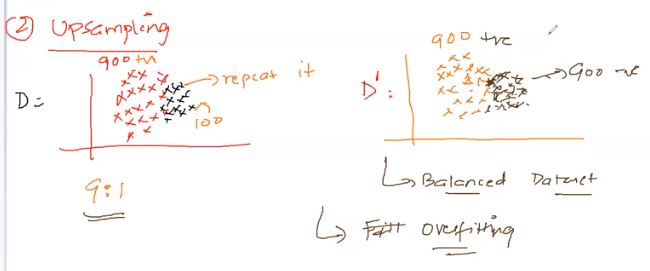 ② Upsampling
900 +ve
repeat it
D =
100
9:1
900 +ve
D' =
900 -ve
Balanced Dataset
Overfitting